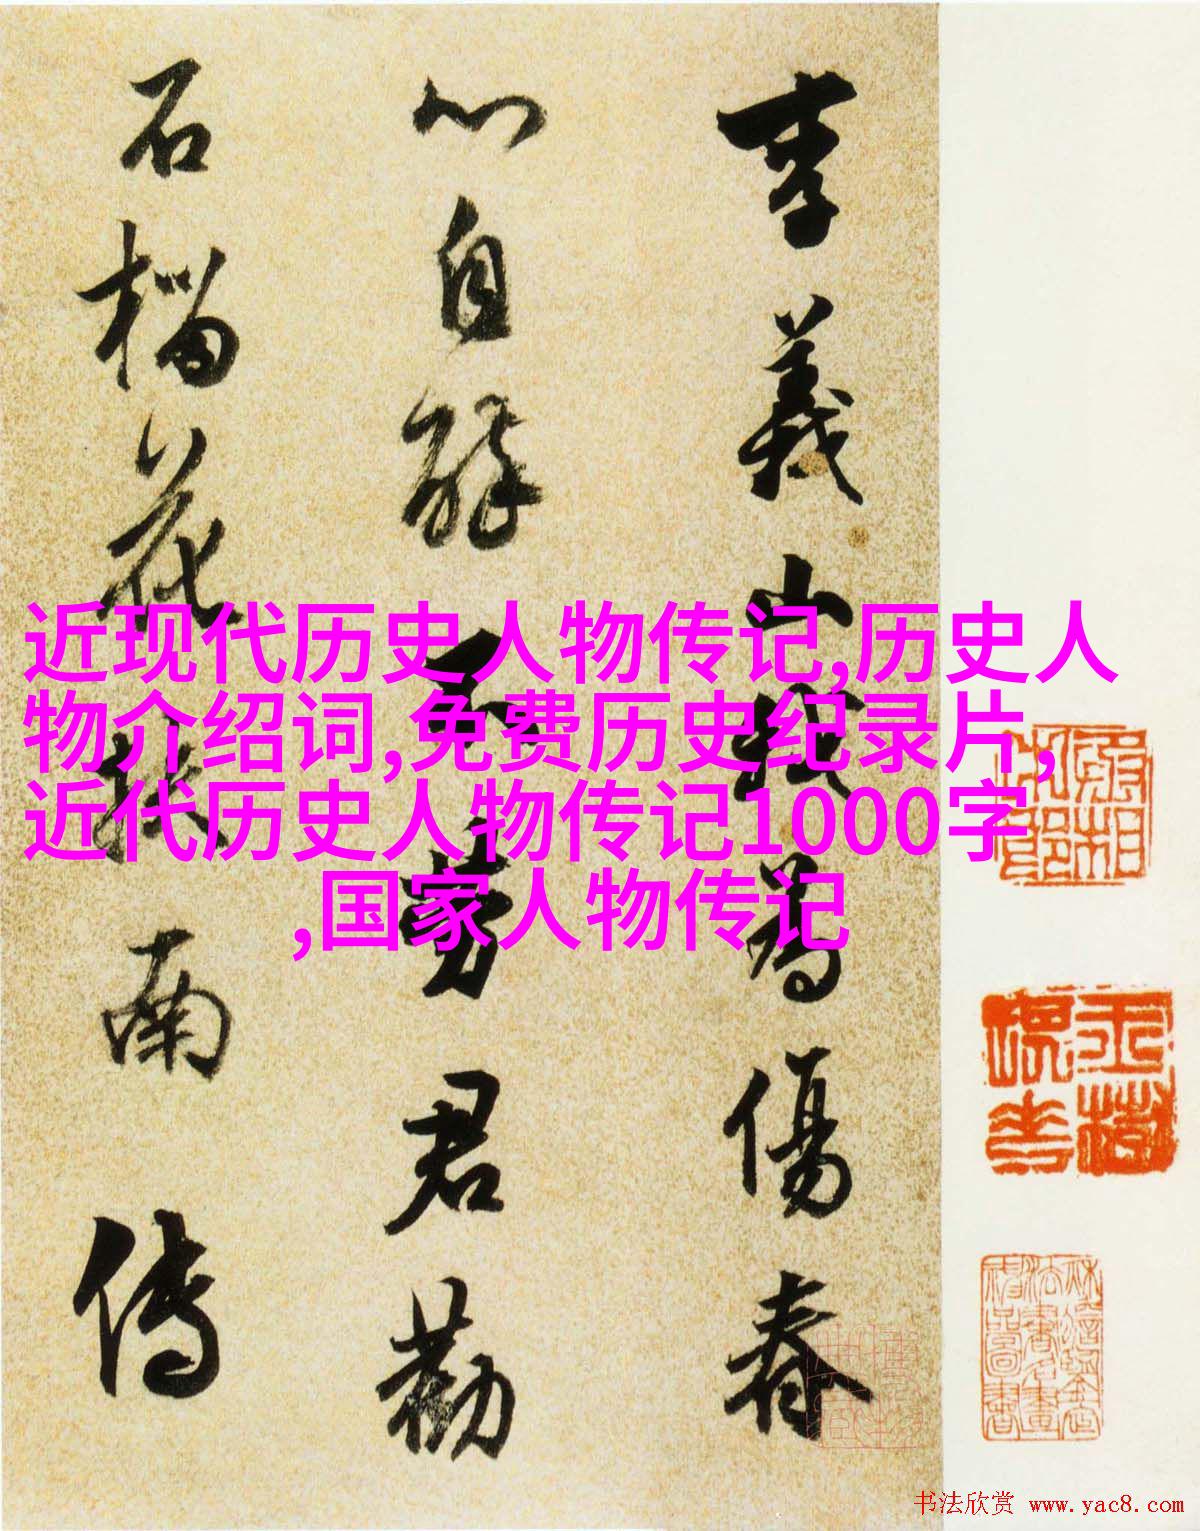 李義山我為傷春
心自醉不勞君勸
石榴花扶南傳
近现代历史人物传记,历史人
物介绍词,免费历史纪录片,
近代历史人物传记1000字
,国家人物传记
书法欣赏 www.yac8.com